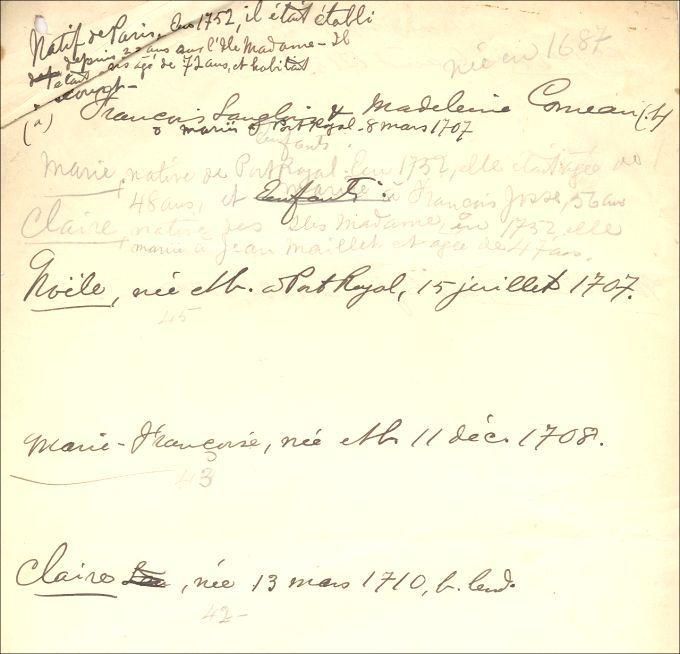 Natif de Paris. En 1752, il était établi
depuis 22 ans sur l'Ile Madame - Il
était âgé de 72 ans, et habitait
née en 1687
(a) François Langlois & Madeleine Comeau (b)
mariés à Port Royal - 8 mars 1707
Enfants
Marie, native de Port Royal. En 1752, elle était âgée de
48 ans, et mariée à François Josse, 56 ans
Enfants :
Claire, native des Iles Madame, en 1752, elle
mariée à Jean Maillet et âgée de 47 ans.
Noële, née et b. à Port Royal, 15 juillet 1707.
45
Marie-Françoise, née et b. 11 déc. 1708.
43
Claire, née 13 mars 1710, b. lend.
42-